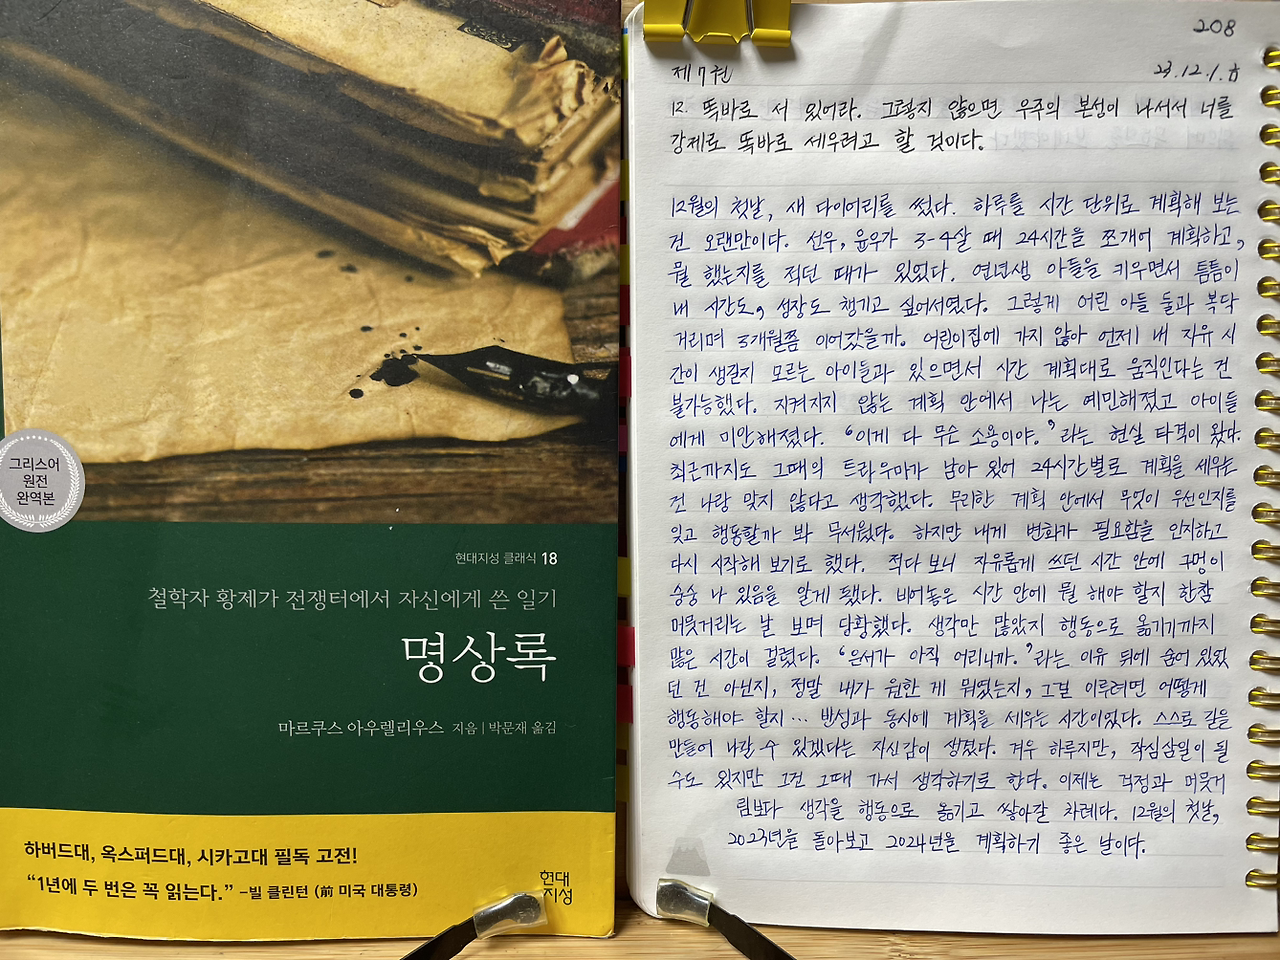 그리스어
원전
완역본
현대지성 클래식 18
철학자 황제가 전쟁터에서 자신에게 쓴 일기
명상록
마르쿠스 아우렐리우스 지음 | 박문재 옮김
하버드대, 옥스퍼드대, 시카고대 필독 고전!
“1년에 두 번은 꼭 읽는다.” –빌 클린턴 (前 미국 대통령)
현대
지성
208
제7권 23.12.1.금
12. 똑바로 서 있어라. 그렇지 않으면 우주의 본성이 나서서 너를
강제로 똑바로 세우려고 할 것이다.
12월의 첫날, 새 다이어리를 썼다. 하루를 시간 단위로 계획해 보는
건 오랜만이다. 선우, 윤우가 3-4살 때 24시간을 쪼개어 계획하고,
뭘 했는지를 적던 때가 있었다. 연년생 아들을 키우면서 틈틈이
내 시간도, 성장도 챙기고 싶어서였다. 그렇게 어린 아들 둘과 복닥
거리며 3개월쯤 이어갔을까. 어린이집에 가지 않아 언제 내 자유 시
간이 생길지 모르는 아이들과 있으면서 시간 계획대로 움직인다는 건
불가능했다. 지켜지지 않는 계획 안에서 나는 예민해졌고 아이들
에게 미안해졌다. “이게 다 무슨 소용이야.”라는 현실 타격이 왔다.
최근까지도 그때의 트라우마가 남아 있어 24시간별로 계획을 세우는
건 나랑 맞지 않다고 생각했다. 무리한 계획 안에서 무엇이 우선인지를
잊고 행동할까 봐 무서웠다. 하지만 내게 변화가 필요함을 인지하고
다시 시작해 보기로 했다. 적다 보니 자유롭게 쓰던 시간 안에 구멍이
숭숭 나 있음을 알게 됐다. 비어놓은 시간 안에 뭘 해야 할지 한참
머뭇거리는 날 보며 당황했다. 생각만 많았지 행동으로 옮기기까지
많은 시간이 걸렸다. “은서가 아직 어리니까.”라는 이유 뒤에 숨어 있었
던 건 아닌지, 정말 내가 원한 게 뭐였는지, 그걸 이루려면 어떻게
행동해야 할지… 반성과 동시에 계획을 세우는 시간이었다. 스스로 길을
만들어 나갈 수 있겠다는 자신감이 생겼다. 겨우 하루지만, 작심삼일이 될
수도 있지만 그건 그때 가서 생각하기로 한다. 이제는 걱정과 머뭇거
림보다 생각을 행동으로 옮기고 쌓아갈 차례다. 12월의 첫날,
2023년을 돌아보고 2024년을 계획하기 좋은 날이다.